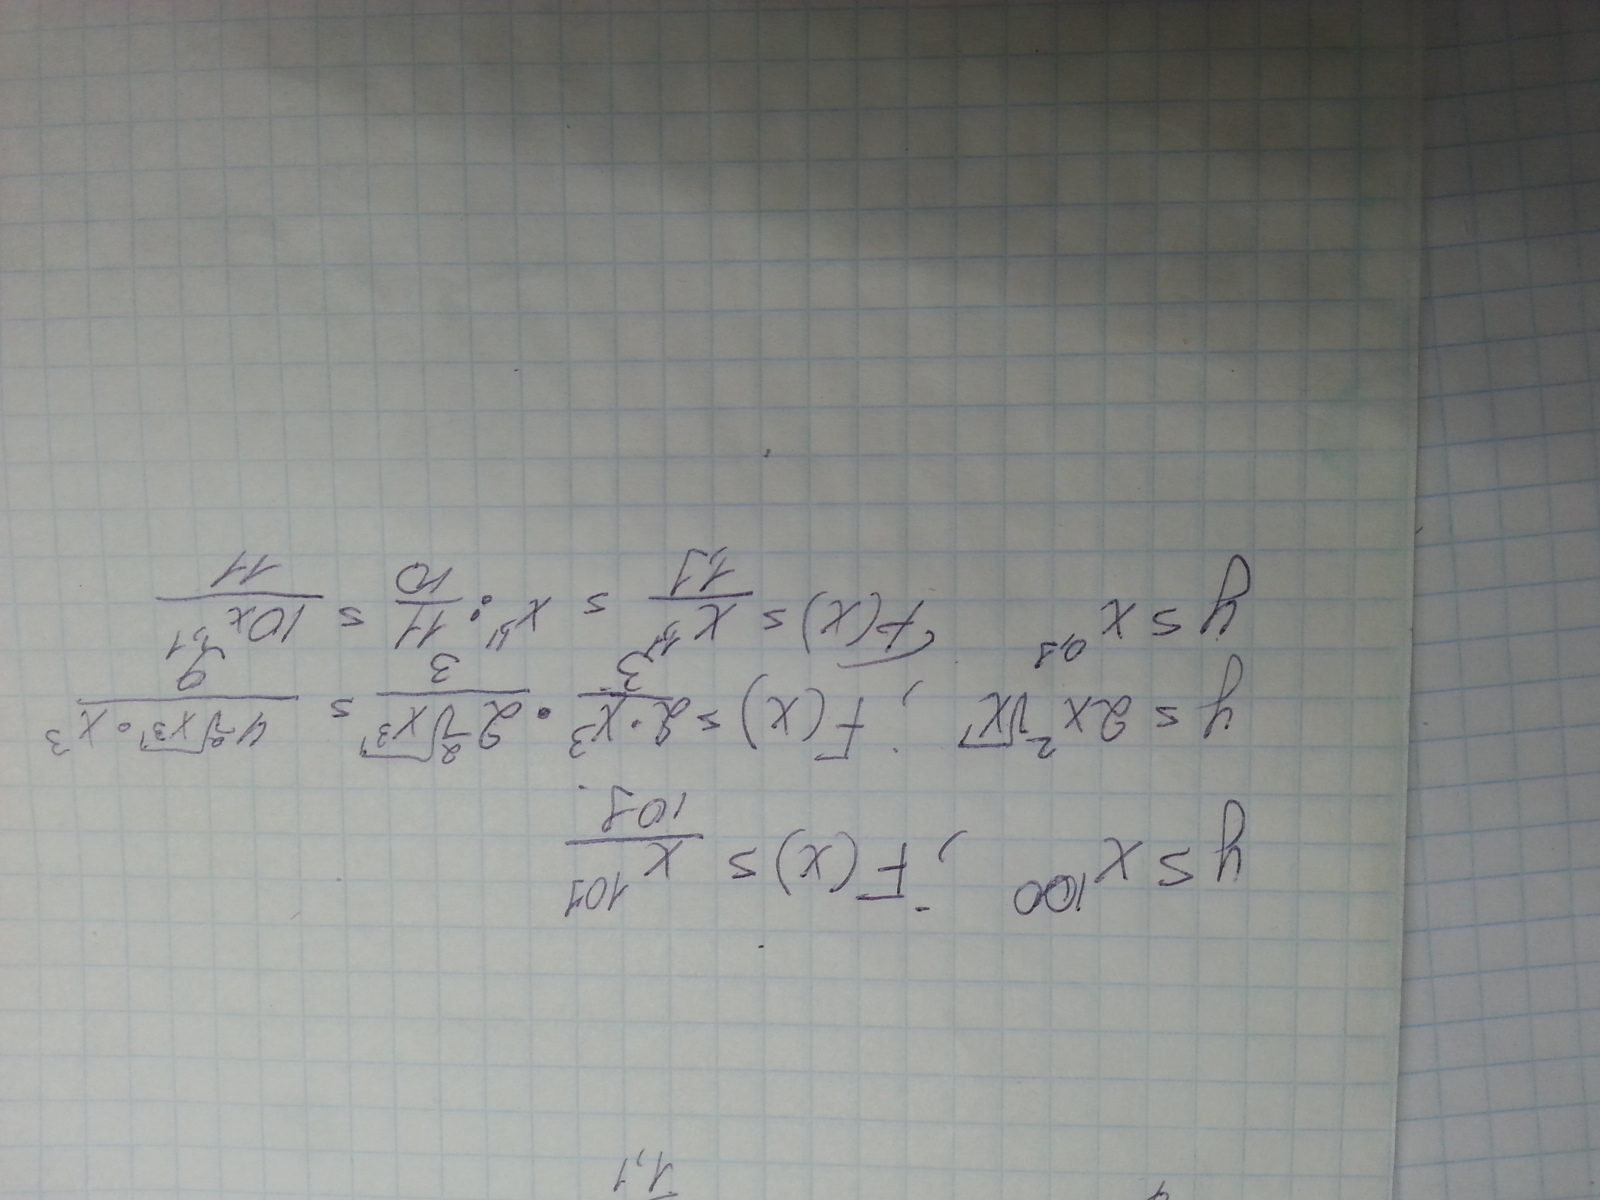 1,1
y = x¹⁰⁰ ; F(x) = x¹⁰¹/101
y = 2x²√x ; F(x) = 2·x³/3 · 2²√x³/3 = 4²√x³·x³/9
y = x^0,1 F(x) = x^1,1/1,1 = x^1,1 : 11/10 = 10x^1,1/11